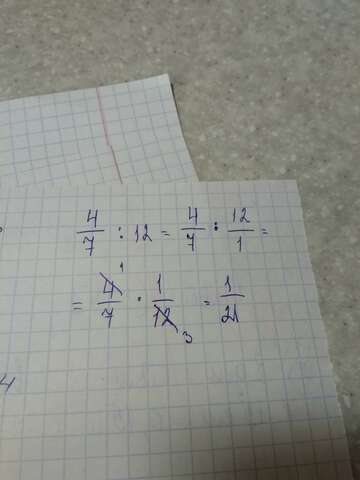 4/7 : 12 = 4/7 : 12/1 =
= 4/7 1 · 1/12 3 = 1/21
4